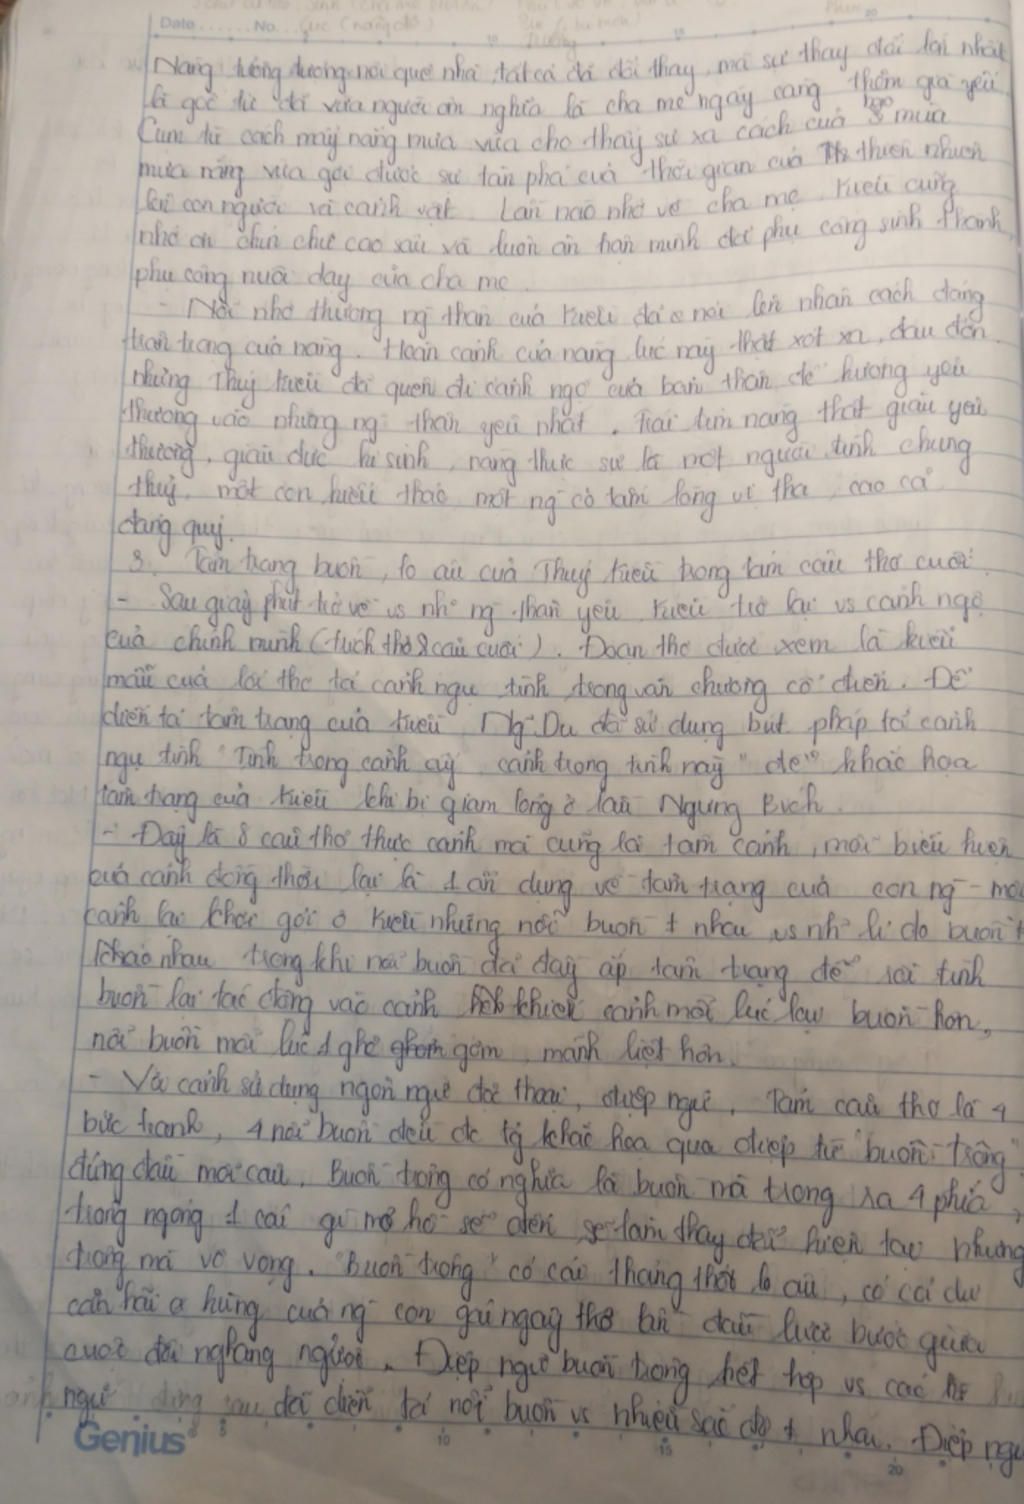 Date ...... No. ...
Nàng tưởng tượng nơi quê nhà, tất cả đã đổi thay, mà sự thay đổi lớn nhất
là gốc tử đã vừa người ôm nghĩa là cha mẹ ngày càng thêm già yếu.
Cụm từ cách mấy nắng mưa vừa cho thấy sự xa cách của bao mùa
mưa nắng vừa gợi được sự tàn phá của thời gian của thiên nhiên
lên con người và cảnh vật. Lần nào nhớ về cha mẹ, Kiều cũng
nhớ ơn chín chữ cao sâu và luôn ân hận mình đã phụ công sinh thành,
phụ công nuôi dạy của cha mẹ.
- Nỗi nhớ thương ng thân của Kiều đã nói lên nhân cách đáng
trân trọng của nàng. Hoàn cảnh của nàng lúc này thật xót xa, đau đớn.
nhưng Thuý Kiều đã quên đi cảnh ngộ của bản thân để hướng yêu
thương vào những ng thân yêu nhất. Trái tim nàng thật giàu yêu
thương, giàu đức hi sinh, nàng thực sự là một người tình chung
thuỷ, một con hiếu thảo một ng có tấm lòng vị tha, cao cả
đáng quý.
3. Tâm trạng buồn, lo âu của Thuý Kiều trong tám câu thơ cuối.
- Sau giây phút trở về vs nh~ ng thân yêu Kiều trở lại vs cảnh ngộ
của chính mình (trích thơ 8 câu cuối). Đoạn thơ được xem là kiểu
mẫu của lối thơ tả cảnh ngụ tình trong văn chương cổ điển. Để
diễn tả tâm trạng của Kiều Ng~ Du đã sử dụng bút pháp tả cảnh
ngụ tình "Tình trong cảnh ấy, cảnh trong tình này" để khắc hoạ
tâm trạng của Kiều khi bị giam lỏng ở lầu Ngưng Bích.
- Đây là 8 câu thơ thực cảnh mà cũng là tâm cảnh, mỗi biểu hiện
của cảnh đồng thời lại là 1 ẩn dụng về tâm trạng của con ng - mỗi
cảnh lại khơi gợi ở Kiều những nỗi buồn ≠ nhau vs nh~ lí do buồn
khác nhau trong khi nỗi buồn đã đầy ắp tâm trạng để rồi tình
buồn lại tác động vào cảnh khiến cảnh mỗi lúc lại buồn hơn,
nỗi buồn mỗi lúc 1 ghê gớm, mãnh liệt hơn.
- Với cách sử dụng ngôn ngữ độc thoại, điệp ngữ, Tám câu thơ là 4
bức tranh, 4 nỗi buồn đều đc tg khắc hoạ qua điệp từ "buồn trông"
đứng đầu mỗi câu. Buồn trông có nghĩa là buồn mà trông ra 4 phía,
trông ngóng 1 cái gì mơ hồ sẽ đến sẽ làm thay đổi hiện tại nhưng
trông mà vô vọng. "Buồn trông" có cái thảng thốt lo âu, có cái dự
cảm hãi hùng của ng con gái ngây thơ lần đầu lưu bước giữa
cuộc đời ngang ngửa. Điệp ngữ buồn trông kết hợp vs các
ngữ đứng sau đã diễn tả nỗi buồn vs nhiều sắc độ ≠ nhau. Điệp ngữ
Genius